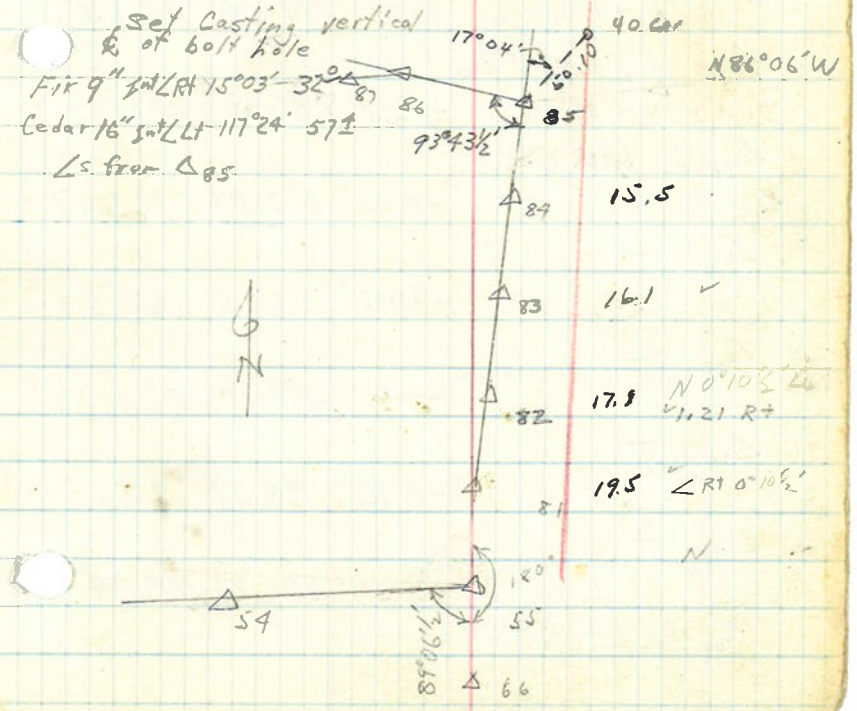 Set Casting vertical
℄ of bolt hole
Fir 9" Int∠Rt 15°03' - 32°
Cedar 16" Int∠Lt 117°24' 57±
∠s from △85
17°04'
150.10
N86°06'W
87
86
85
93°43½'
84 15.5
83 16.1 ✓
N 0°10½'
82 17.9 ✓1.21 Rt
81 19.5 ∠ Rt 0°10½'
N
180°
N
54
55
89°06½'
66